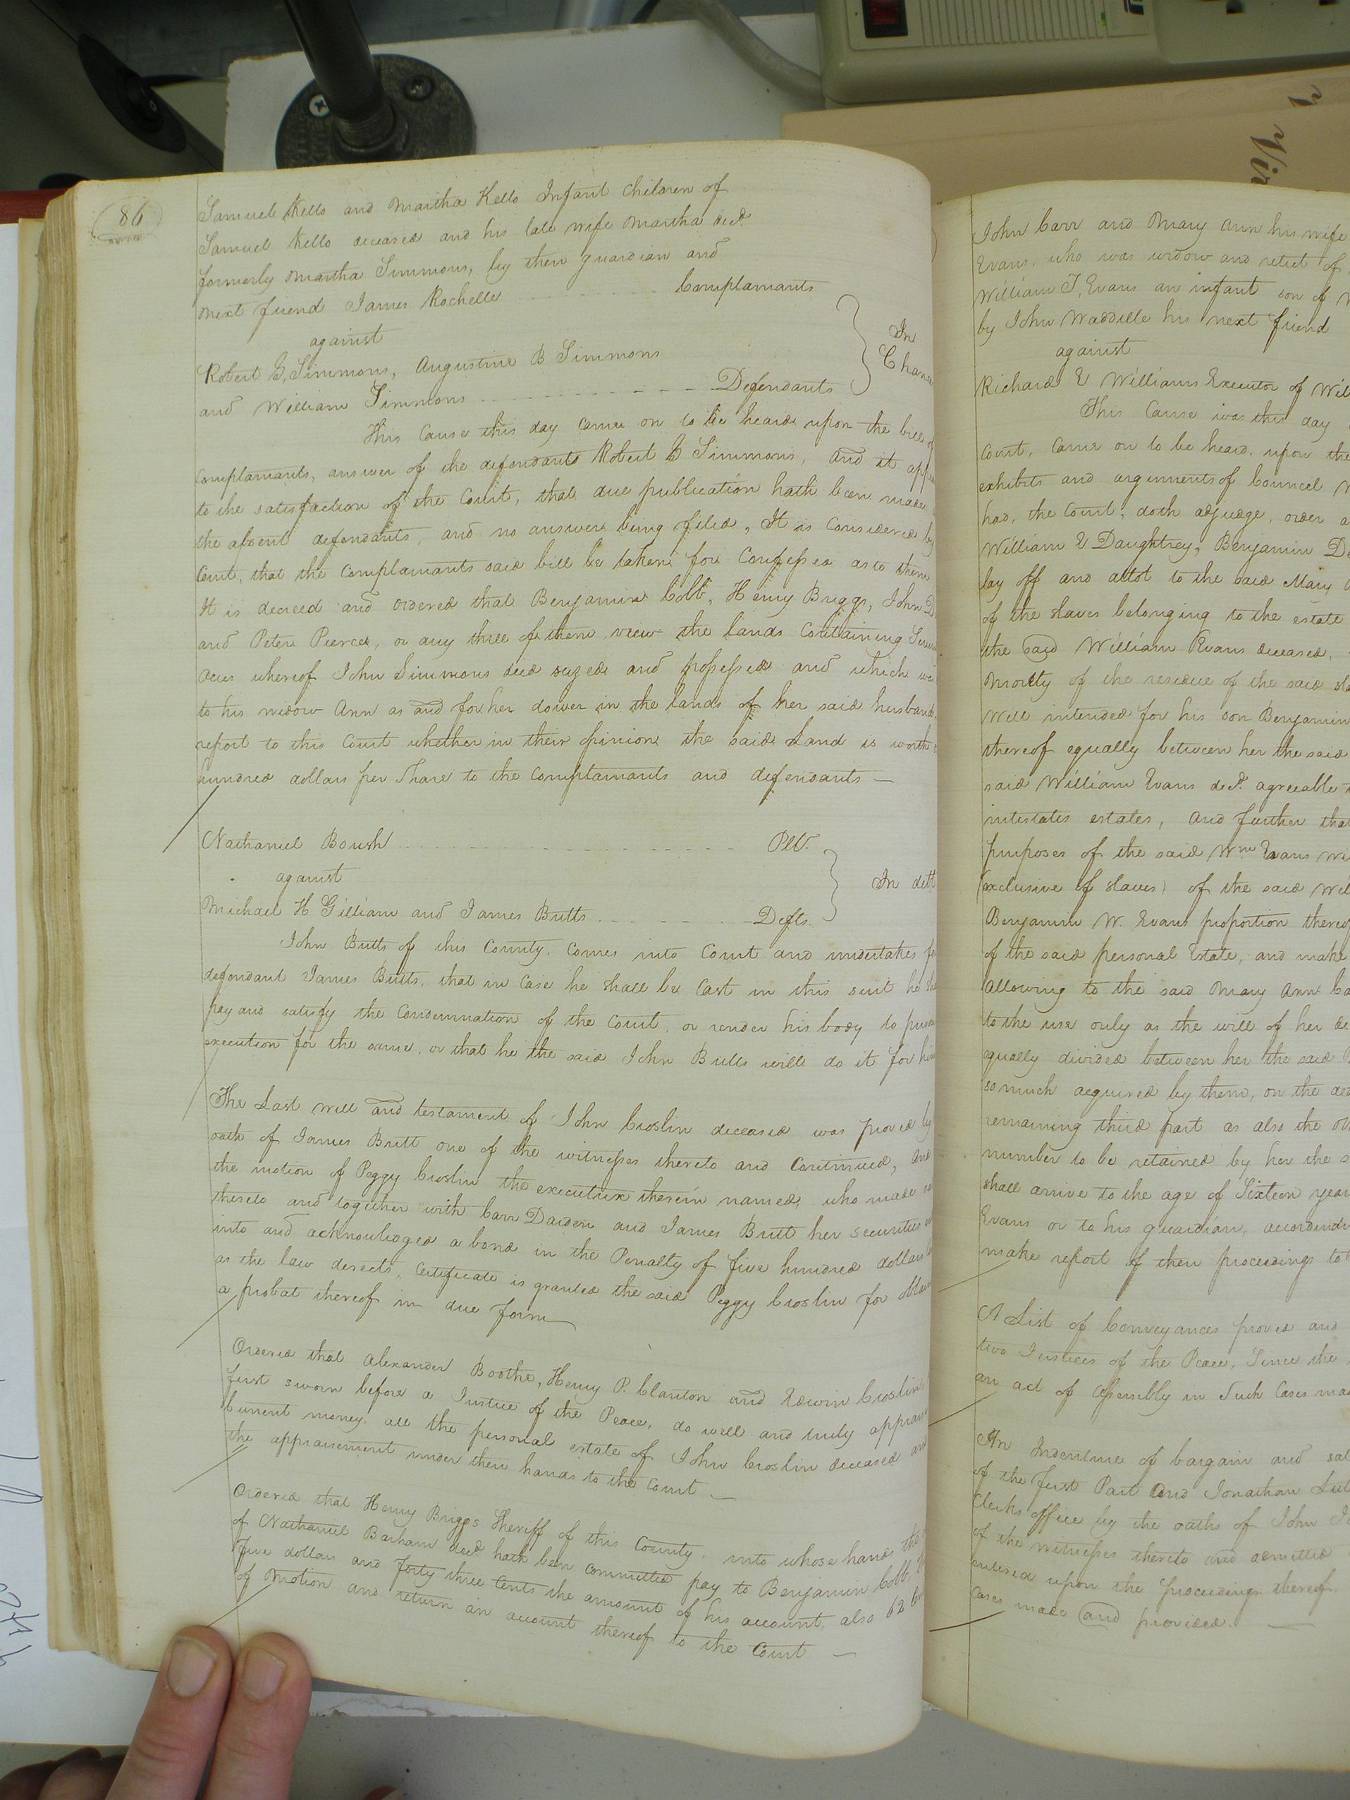 86
Samuel Kello and Martha Kello Infant Children of
Samuel Kello deceased and his late wife Martha decd.
formerly Martha Simmons, by their guardian and
next friend James Rochelle Complainants
against
Robert G. Simmons, Augustine B Simmons
and William Simmons Defendants
In
Chan
This Cause this day came on to be heard upon the bill of
complainants, answer of the defendant Robert G Simmons, and it app
to the satisfaction of the Court, that due publication hath been made
the absent defendants, and no answer being filed, It is Considered by
Court, that the Complainants said bill be taken for Confessed as to them
It is decreed and ordered that Benjamin Cobb, Henry Briggs, John D
and Peter Pierce, or any three of them view the lands Containing
acres whereof John Simmons died seized and possessed and which
to his widow Ann as and for her dower in the lands of her said husband,
report to this Court whether in their opinion the said Land is worth
hundred dollars per Share to the Complainants and defendants —
Nathaniel Boush Plt.
against
Michael H Gilliam and James Butts Defts.
In debt
John Butts of this County, Comes into Court and undertakes for
defendant James Butts, that in Case he shall be Cast in this suit he
pay and satisfy the Condemnation of the Court, or render his body to prison
execution for the same, or that he the said John Butts will do it for him
The Last will and testament of John Croslin deceased was proved by
oath of James Britt one of the witnesses thereto and Continued, and
the motion of Peggy Croslin the executrix therein named, who made
thereto and together with Carr Darden and James Britt her securities
into and acknowledged a bond in the Penalty of five hundred dollars
as the law directs, Certificate is granted the said Peggy Croslin for
a probat thereof in due form
Ordered that Alexander Boothe, Henry P. Clanton and Edwin Croslin
first sworn before a Justice of the Peace, do well and truly appraise
Current money all the personal estate of John Croslin deceased and
the appraisement under their hands to the Court —
Ordered that Henry Briggs Sheriff of this County, into whose hands the
of Nathaniel Barham decd hath been committed pay to Benjamin Cobb
five dollars and forty three Cents the amount of his account, also 62
of Motion and return an account thereof to the Court —
John Carr and Mary Ann his wife
Evans, who was widow and relict of
William T, Evans an infant son of
by John Waddille his next friend
against
Richard E Williams Executor of Wil
This Cause was this day
Court, came on to be heard, upon the
exhibits and arguments of Council
had, the Court, doth adjudge, order a
William E Daughtrey, Benjamin D
lay off and allot to the said Mary
of the slaves belonging to the estate
the said William Evans deceased,
Moiety of the residue of the said sla
Will intended for his son Benjamin
thereof equally between her the said
said William Evans decd. agreeable
intestates estates, and further that
purposes of the said Wm Evans
(exclusive of slaves) of the said Wil
Benjamin W. Evans proportion there
of the said personal Estate, and make
allowing to the said Mary Ann Ca
to the use only as the will of her de
equally divided between her the said
so much acquired by them, on the
remaining third part as also the
number to be retained by her the s
shall arrive to the age of Sixteen year
Evans or to his guardian, according
make report of their proceedings to
A List of Conveyances proved and
two Justices of the Peace, Since the
an act of Assembly in Such Cases mad
An Indenture of bargain and sal
of the first Part and Jonathan
Clerks office by the oaths of John
of the witnesses thereto and admitted
entered upon the proceedings thereof
cases made and provided. —
Vir